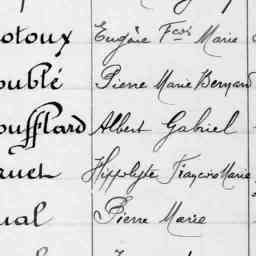 otoux Eugène Fcois Marie
oublé Pierre Marie Bernard
oufflard Albert Gabriel
ruet Hippolyte François Marie
ual Pierre Marie